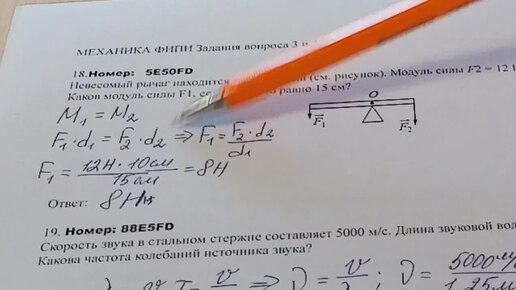 МЕХАНИКА ФИПИ Задания вопроса 3 и
18.Номер: 5E50FD
Невесомый рычаг находится (см. рисунок). Модуль силы F2 = 12 Н
Каков модуль силы F1, равно 15 см?
M₁ = M₂
F₁ · d₁ = F₂ · d₂ ⇒ F₁ = F₂ · d₂ / d₁
O
F₁ F₂
F₁ = 12Н · 10см / 15см = 8Н
Ответ: 8Н
19. Номер: 88E5FD
Скорость звука в стальном стержне составляет 5000 м/с. Длина звуковой вол
Какова частота колебаний источника звука?
ν = v / ν = 5000 м/ 1,25 м